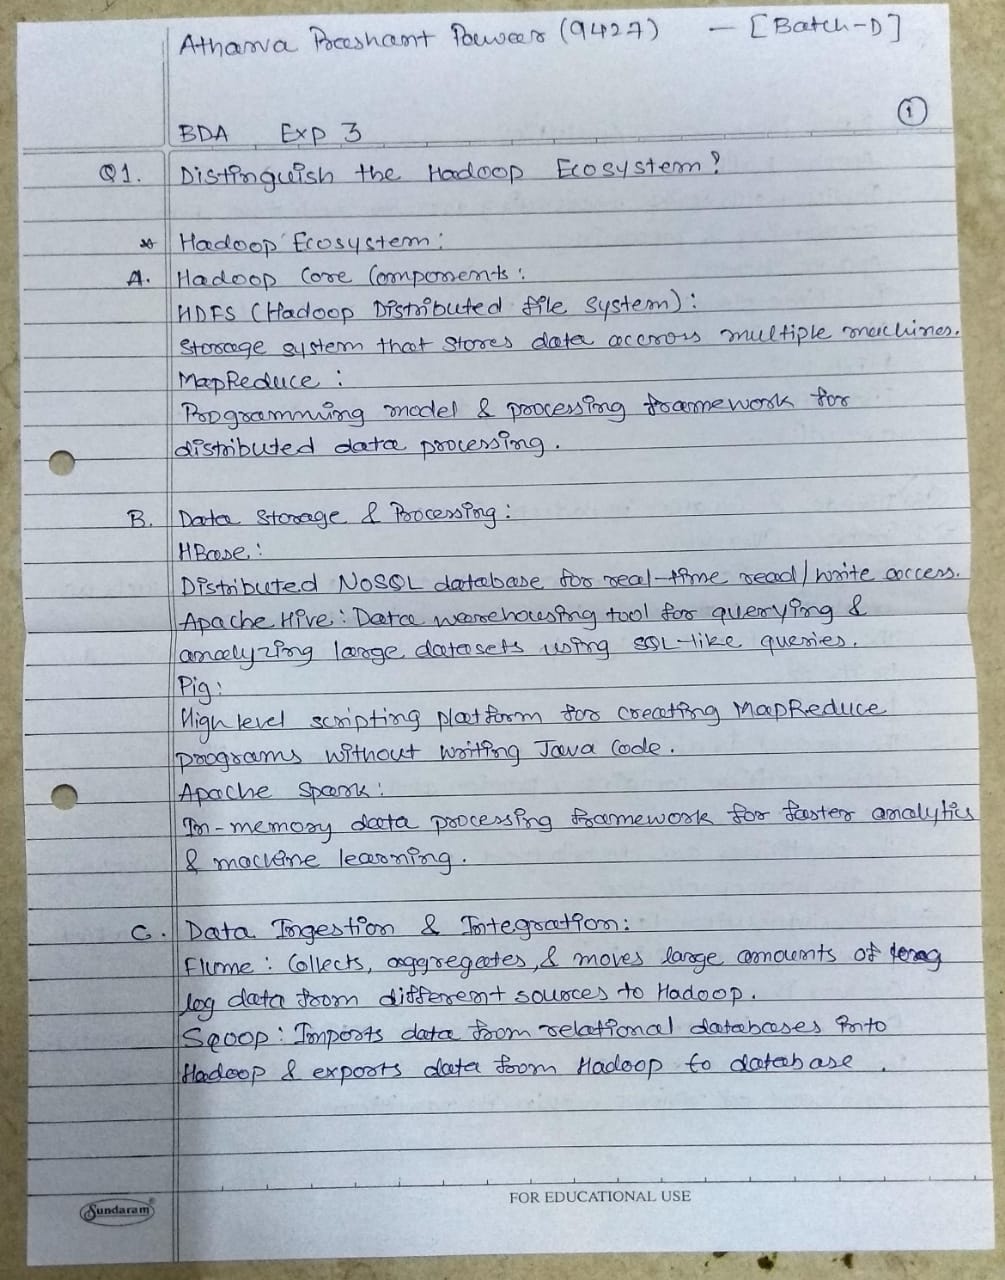 Atharva Prashant Pawar (9427) — [Batch-D]
1
BDA Exp 3
Q1. Distinguish the Hadoop Ecosystem?
Hadoop Ecosystem:
A. Hadoop Core Components:
HDFS (Hadoop Distributed file system):
Storage system that stores data accross multiple machines.
MapReduce:
Programming model & processing framework for
distributed data processing.
B. Data Storage & Processing:
HBase:
Distributed NoSQL database for real-time read/write access.
Apache Hive: Data warehousing tool for querying &
analyzing large datasets using SQL-like queries.
Pig:
High level scripting platform for creating MapReduce
programs without writing Java Code.
Apache Spark:
In-memory data processing framework for faster analytics
& machine learning.
C. Data Ingestion & Integration:
Flume: Collects, aggregates, & moves large amounts of
log data from different sources to Hadoop.
Sqoop: Imports data from relational databases into
Hadoop & exports data from Hadoop to database.
Sundaram
FOR EDUCATIONAL USE